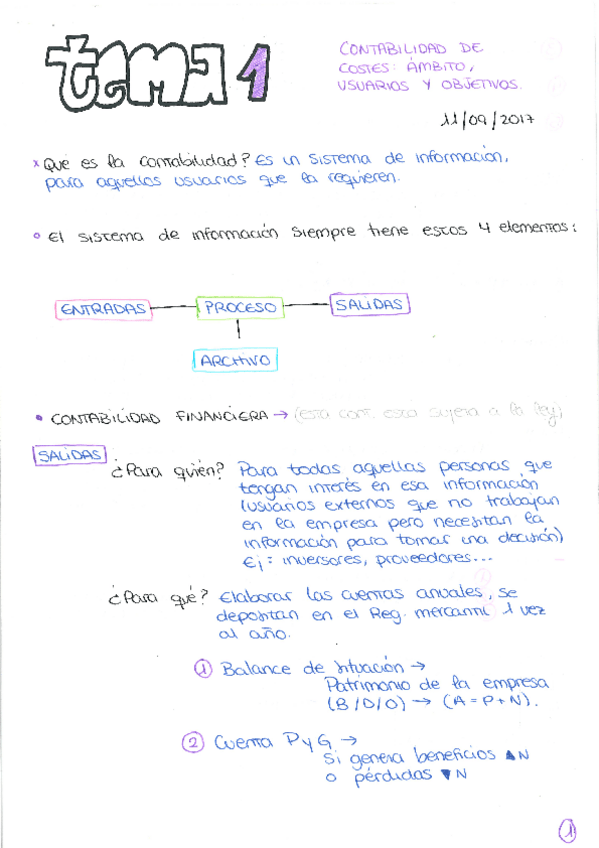 tema 1
CONTABILIDAD DE
COSTES: ÁMBITO,
USUARIOS Y OBJETIVOS.
11/09/2017
x Que es la contabilidad? Es un sistema de información,
para aquellos usuarios que la requieren.
• El sistema de información siempre tiene estos 4 elementos:
ENTRADAS PROCESO SALIDAS
ARCHIVO
• CONTABILIDAD FINANCIERA → (esta cont. esta sujeta a la ley)
SALIDAS
¿Para quién? Para todas aquellas personas que
tengan interés en esa información
(usuarios externos que no trabajan
en la empresa pero necesitan la
información para tomar una decisión)
Ej: inversores, proveedores...
¿Para qué? Elaborar las cuentas anuales, se
depositan en el Reg. mercantil 1 vez
al año.
① Balance de situación →
Patrimonio de la empresa
(B/D/O) → (A = P + N).
② Cuenta PyG →
Si genera beneficios ▲N
o pérdidas ▼N
1